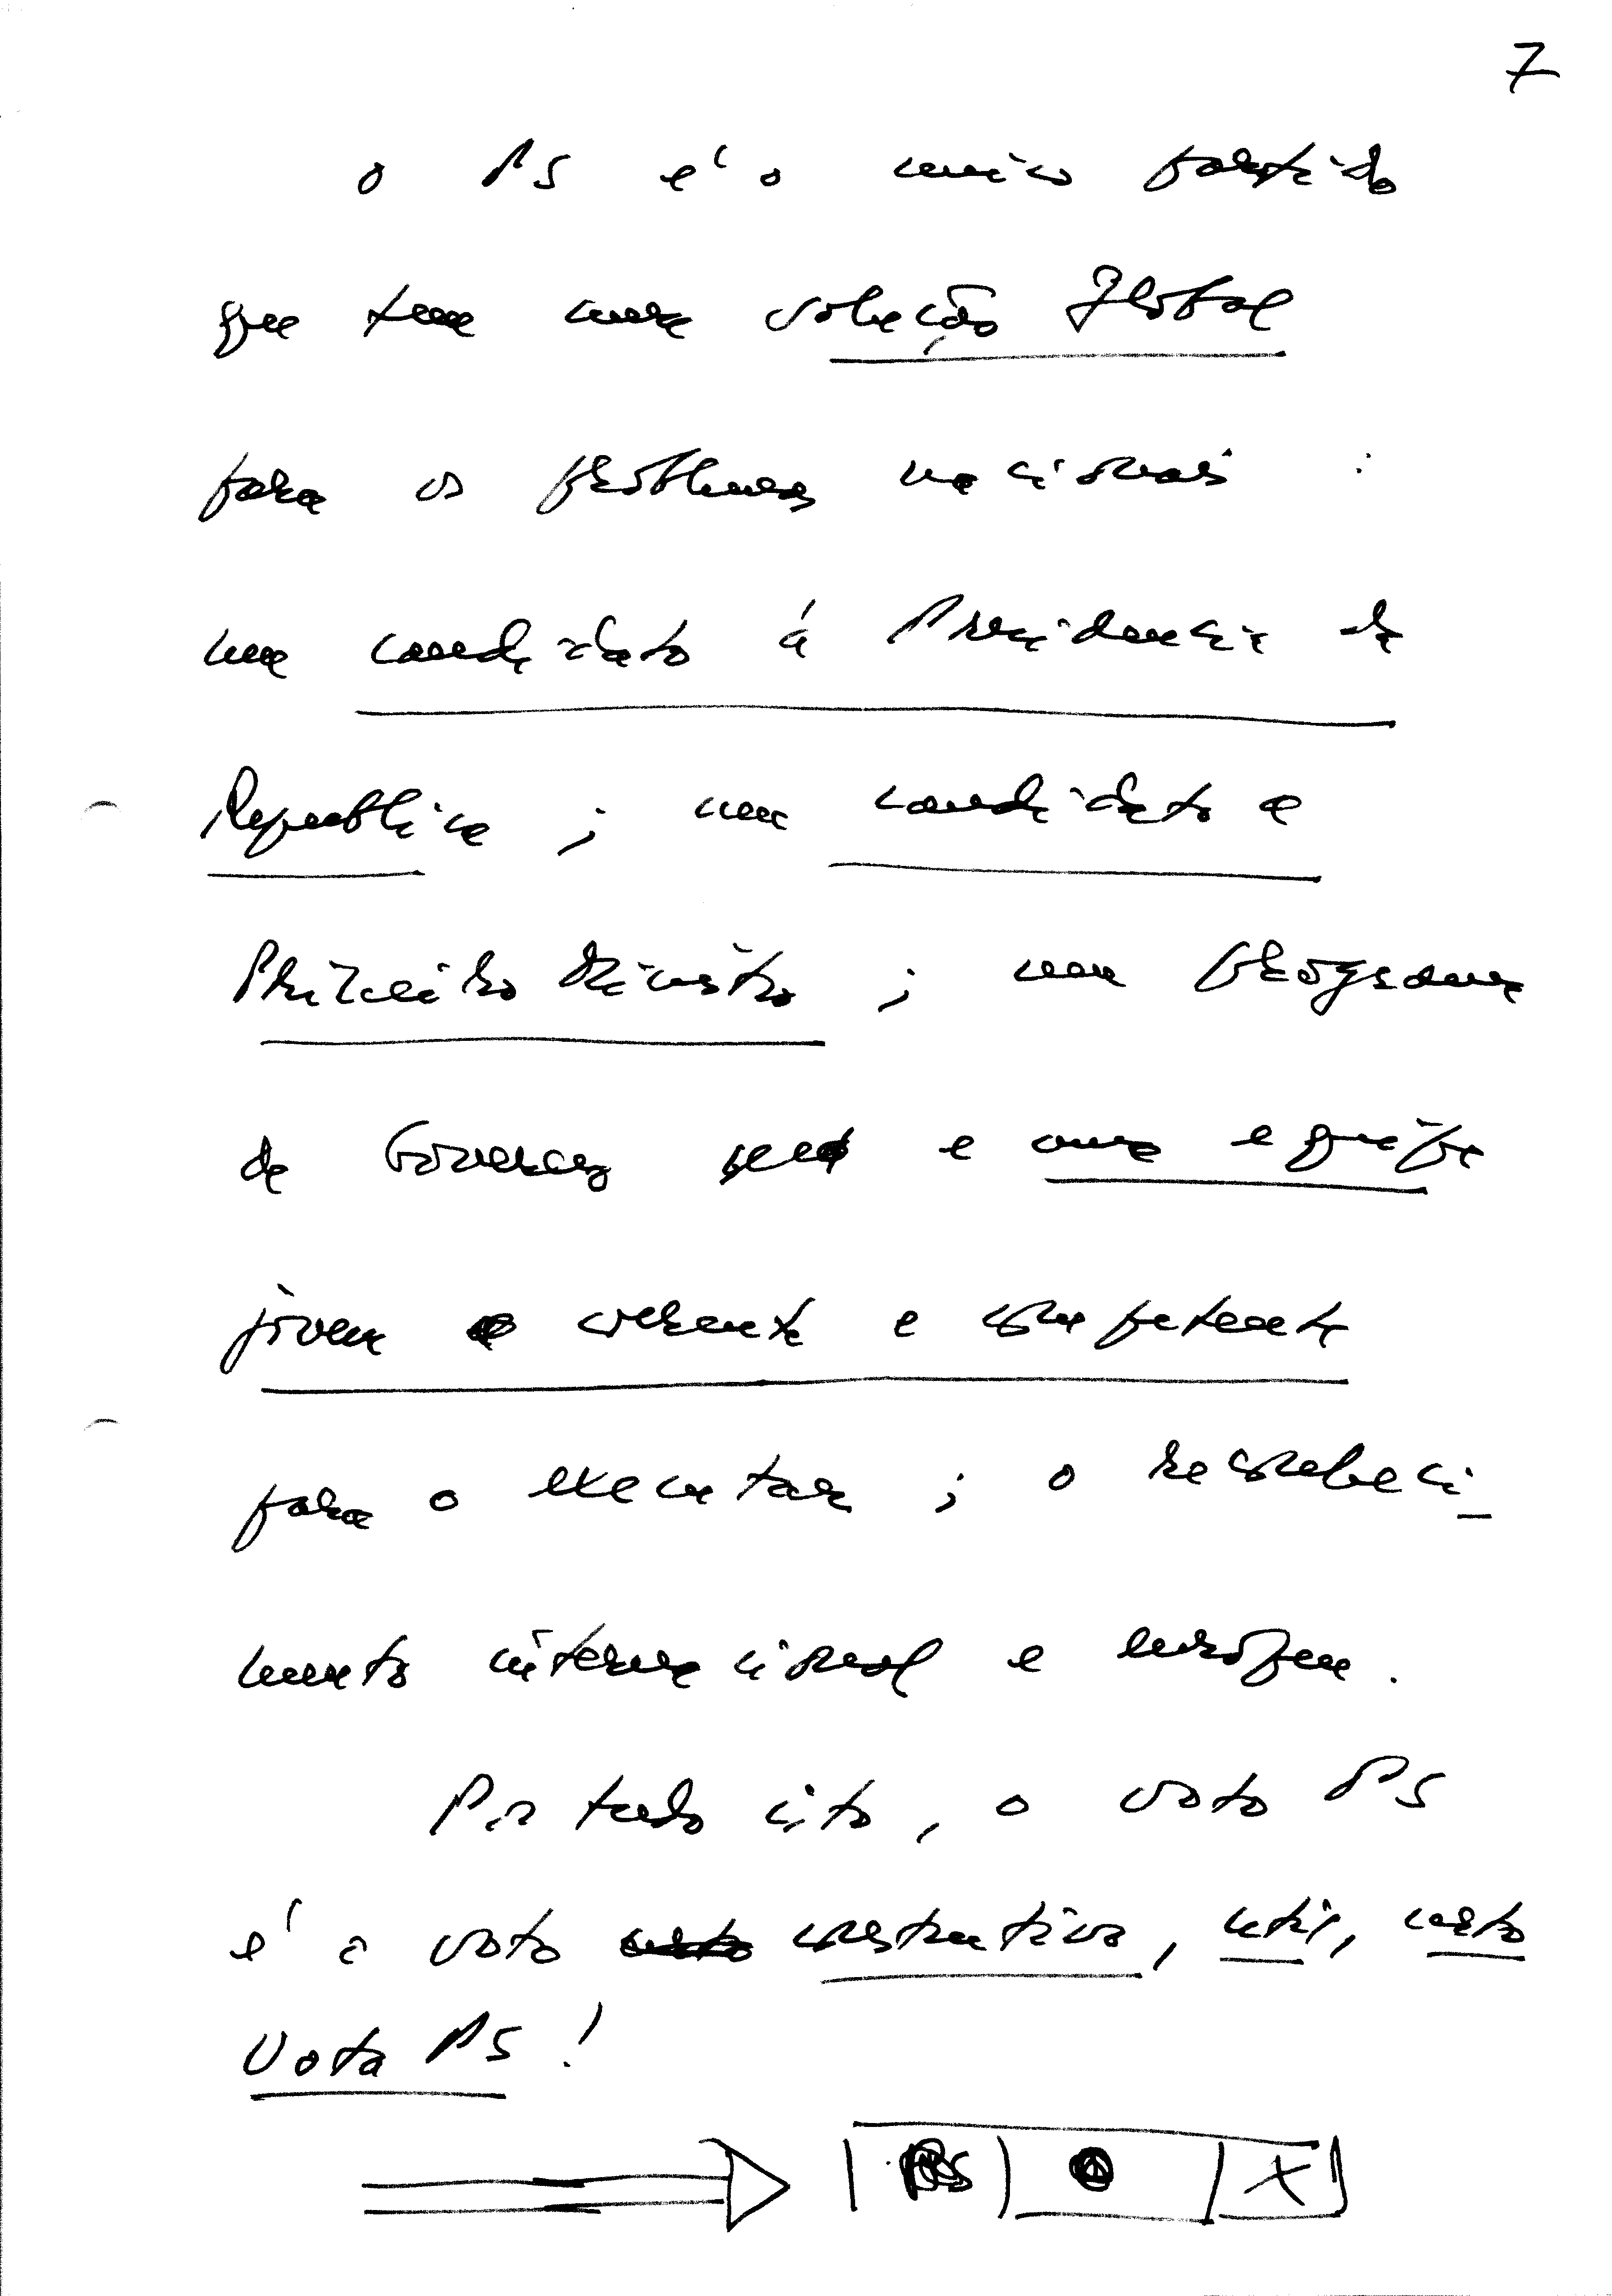 7
o PS é o unico partido
que tem uma solução Global
para os problemas nacionais :
um candidato á Presidencia da
Republica ; um candidato a
Primeiro Ministro ; um programa
de Governo e uma equipe
jovem coerente e competente
para o executar ; o reconheci_
mento internacional e europeu.
Por tudo isto, o voto PS
é o voto construtivo, util, certo
Vota PS !
PS X